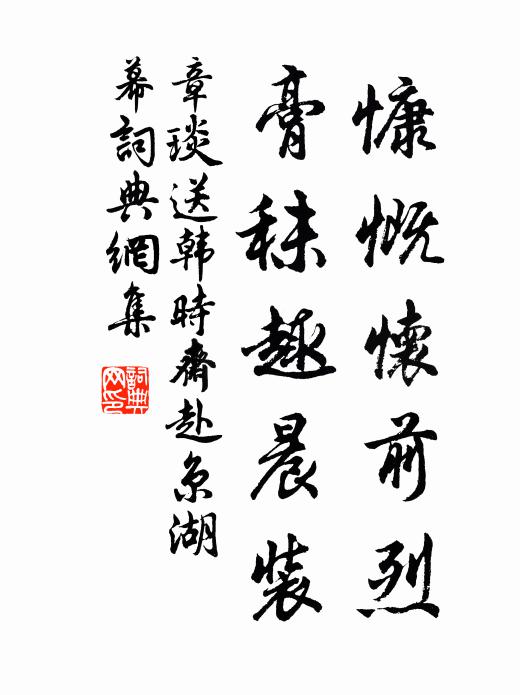 慷慨懷前烈
膏秣趣晨裝
章琰送韩時齋赴京湖
幕詞典網集
詞典
网印